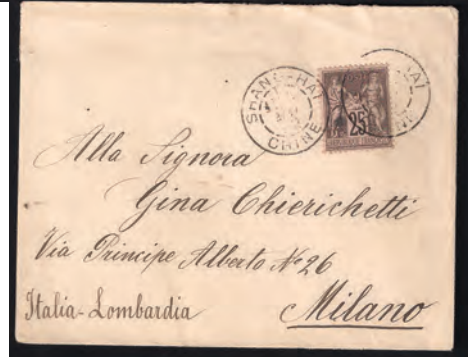 SHANG-HAI
CHINE
25
Alla Signora
Gina Chierichetti
Via Principe Alberto No 26
Italia-Lombardia
Milano